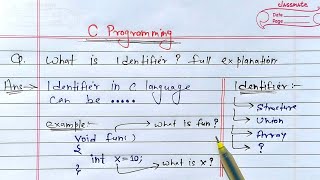 classmate
Date
Page
C Programming
Q. What is Identifier? full explanation
Ans → Identifier in C language
can be .....
Identifier:-
→ Structure
→ Union
→ Array
→ ?
example:-
what is fun?
void fun()
{
int x=10;
what is x?
}